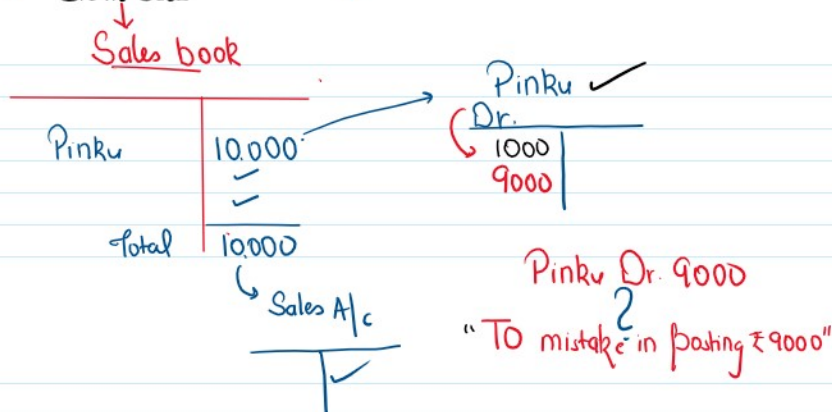 Sales book
Pinku 10.000
Total 10.000
Sales A/c
Pinku
Dr.
1000
9000
Pinku Dr. 9000
?
"To mistake in posting ₹9000"